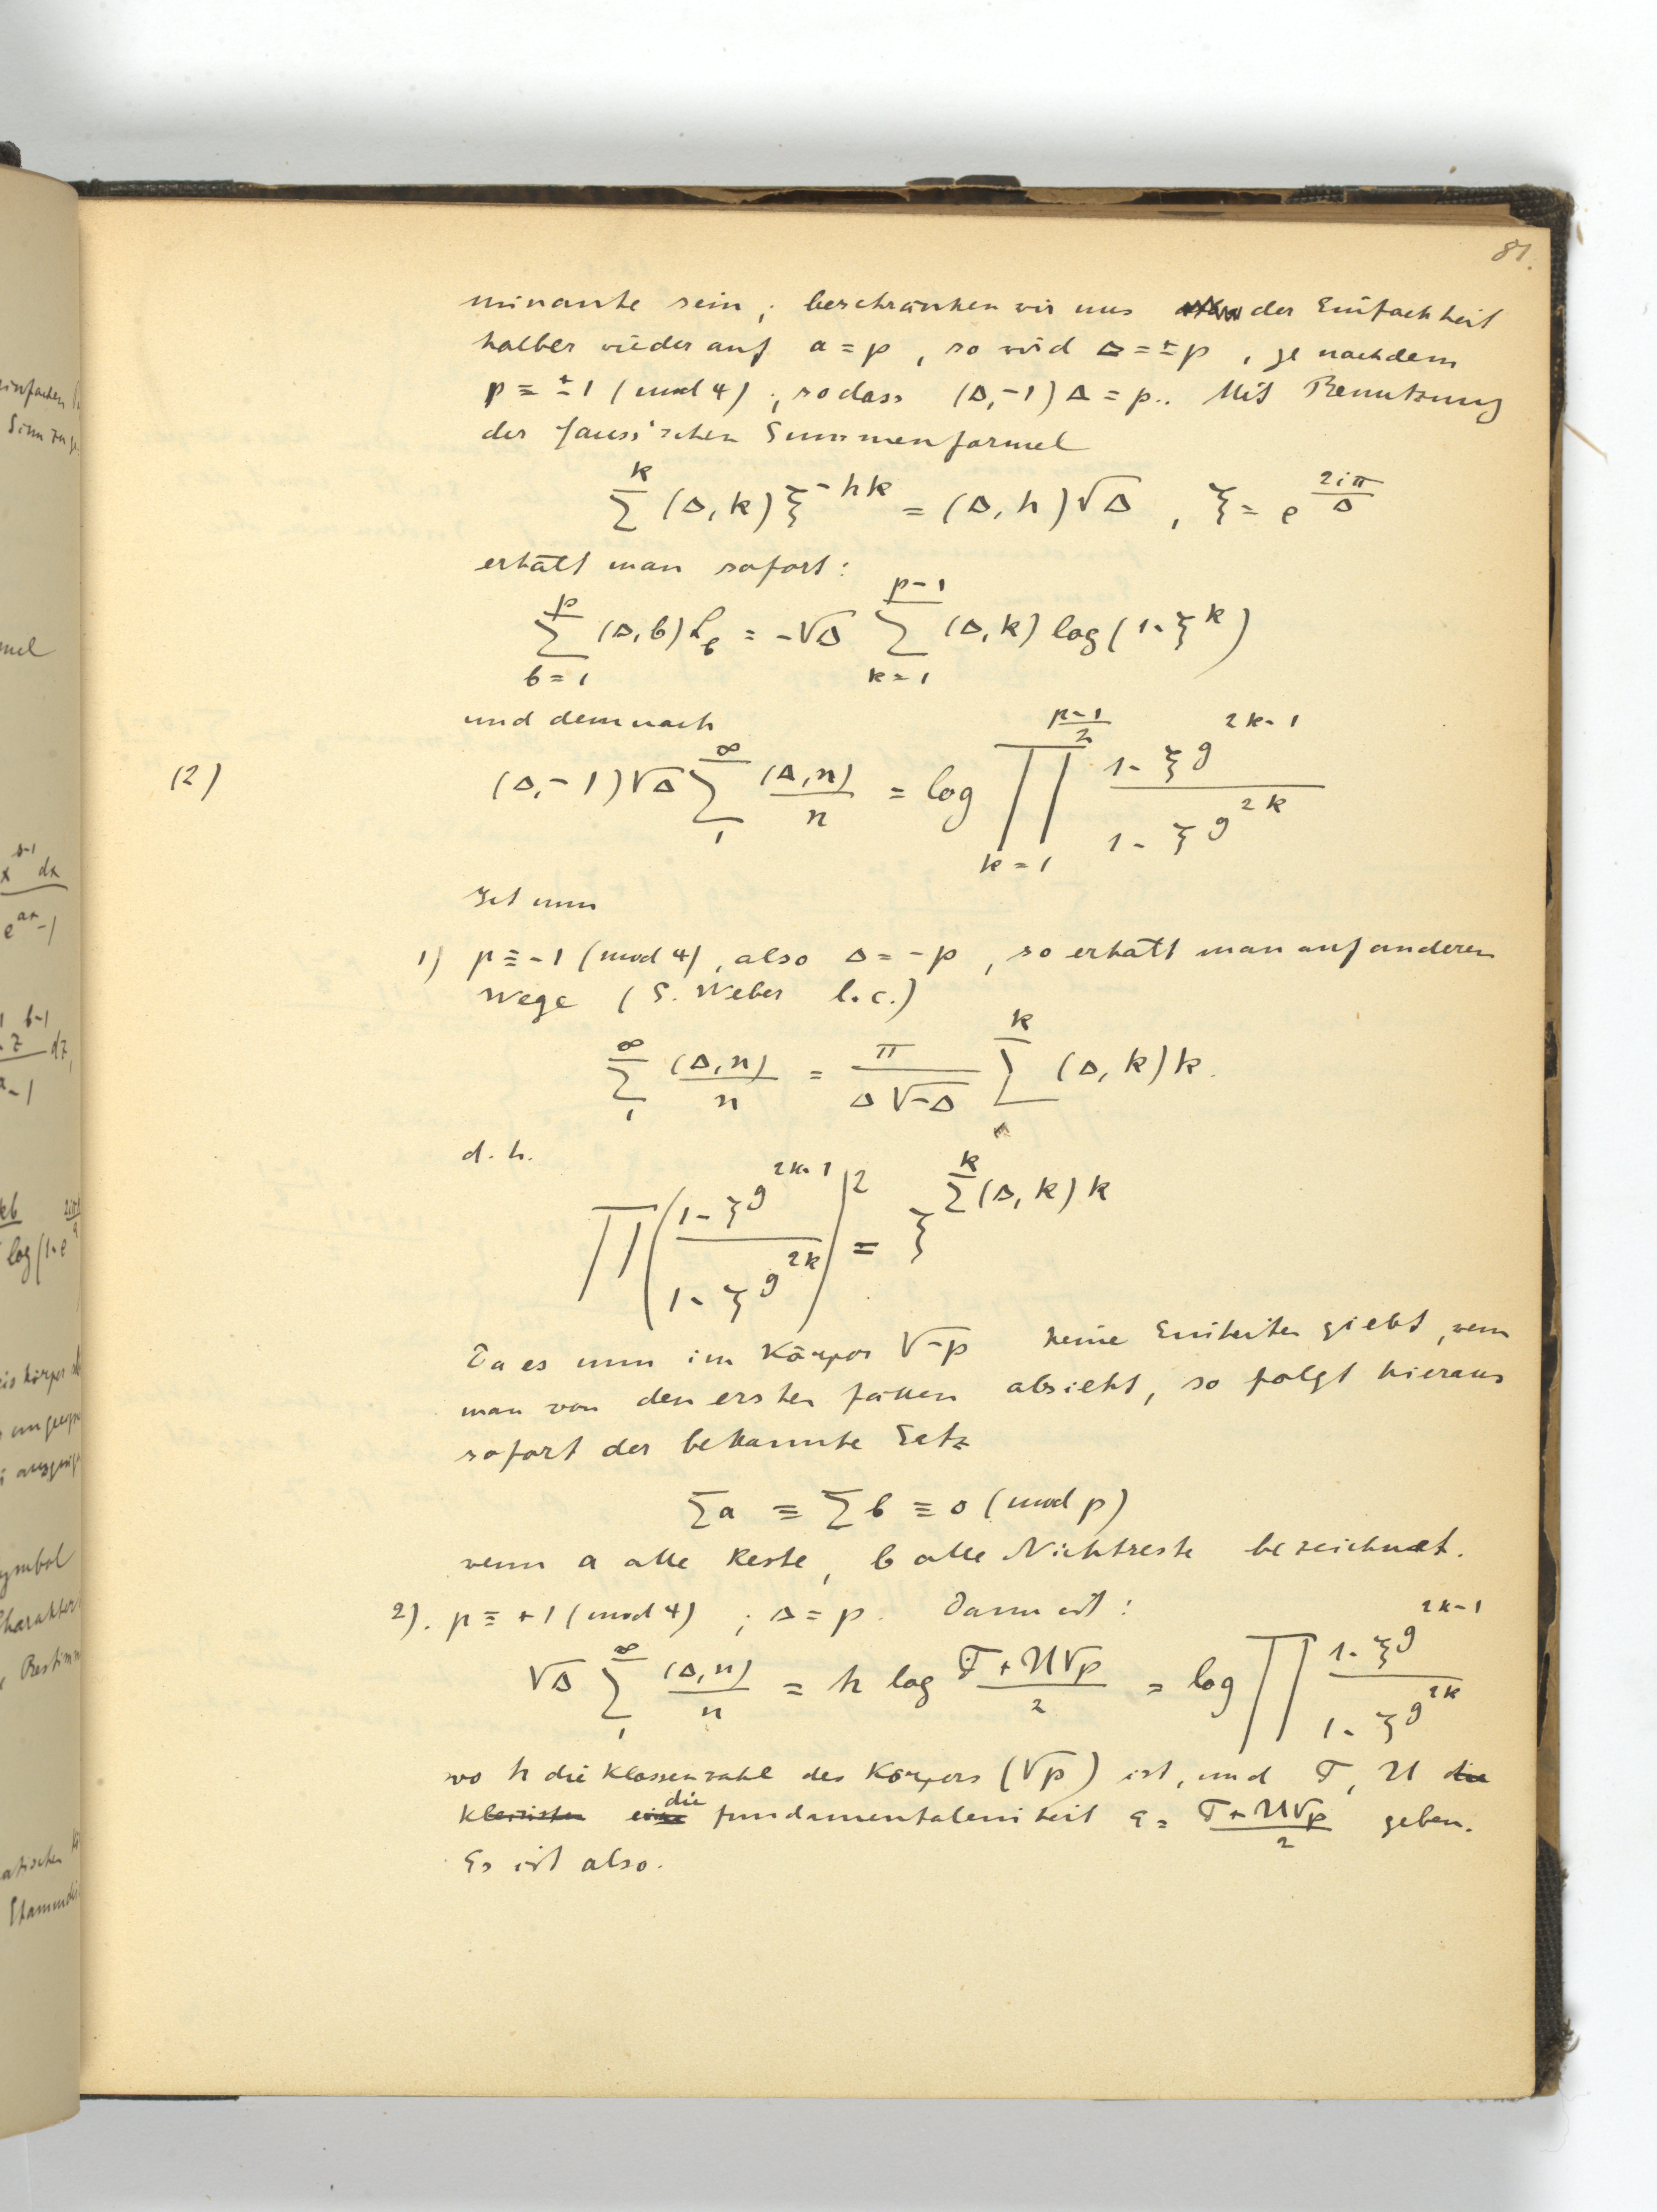 81.
minante sein; beschränken wir uns der Einfachheit
halber wieder auf a = p, so wird Δ = ±p, je nachdem
p ≡ ±1 (mod 4), sodass (Δ,-1)Δ = p.. Mit Benutzung
der Gauss'schen Summenformel
∑^k (Δ,k) ξ^{-hk} = (Δ,h)√Δ , ξ = e^{2iπ/Δ}
erhält man sofort:
∑_{b=1}^{p} (Δ,b) L_b = -√Δ ∑_{k=1}^{p-1} (Δ,k) log(1-ξ^k)
und demnach
(2) (Δ,-1)√Δ ∑_1^∞ (Δ,n)/n = log ∏_{k=1}^{(p-1)/2} (1-ξ^{g^{2k-1}})/(1-ξ^{g^{2k}})
Ist nun
1) p ≡ -1 (mod 4), also Δ = -p, so erhält man auf anderen
Wege (S. Weber l.c.)
∑_1^∞ (Δ,n)/n = π/(Δ√-Δ) ∑^k (Δ,k)k.
d.h.
∏((1-ξ^{g^{2k-1}})/(1-ξ^{g^{2k}}))^2 = ξ^{∑^k (Δ,k)k}
Da es nun im Körper √-p keine Einheiten giebt, wenn
man von den ersten fällen absieht, so folgt hieraus
sofort der bekannte Satz
∑a ≡ ∑b ≡ 0 (mod p)
wenn a alle Reste, b alle Nichtreste bezeichnet.
2). p ≡ +1 (mod 4) ; Δ = p. Dann ist:
√Δ ∑_1^∞ (Δ,n)/n = h log (T+U√p)/2 = log ∏ (1-ξ^{g^{2k-1}})/(1-ξ^{g^{2k}})
wo h die Klassenzahl des Körpers (√p) ist, und T, U die
kleinsten die fundamentaleinheit ε = (T+U√p)/2 geben.
Es ist also.